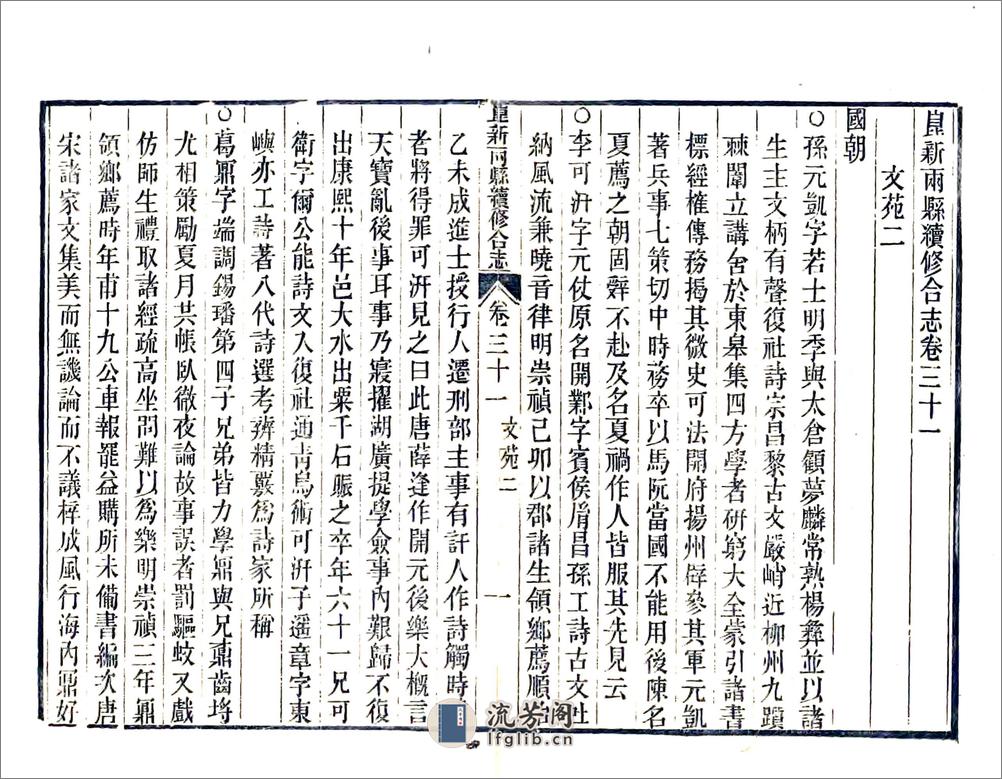 崑新兩縣續修合志卷三十一
文苑二
國朝
○孫元凱字若士明季與太倉顧夢麟常熟楊彝並以諸
生主文柄有聲復社詩宗昌黎古文嚴峭近柳州九躓
棘闈立講舍於東皋集四方學者研窮大全蒙引諸書
標經榷傳務揭其微史可法開府揚州辟參其軍元凱
著兵事七策切中時務卒以馬阮當國不能用後陳名
夏薦之朝固辭不赴及名夏禍作人皆服其先見云
○李可汧字元仗原名開鄴字賓侯胤昌孫工詩古文吐
納風流兼曉音律明崇禎己卯以郡諸生領鄉薦順治
崑新兩縣續修合志
卷三十一 文苑二 一
乙未成進士授行人遷刑部主事有訐人作詩觸時
者將得罪可汧見之曰此唐薛逢作開元後樂大概言
天寶亂後事耳事乃寢擢湖廣提學僉事內艱歸不復
出康熙十年邑大水出粟千石賑之卒年六十一兄可
衛字爾公能詩文入復社通青烏術可汧子遥章字東
嶼亦工詩著八代詩選考辨精覈為詩家所稱
○葛鼏字端調錫璠第四子兄弟皆力學鼏與兄鼐齒埒
尤相策勵夏月共帳臥徹夜論故事誤者罰驅蚊又戲
仿師生禮取諸經疏高坐問難以為樂明崇禎三年鼏
領鄉薦時年甫十九公車報罷益購所未備書編次唐
宋諸家文集美而無譏論而不議梓成風行海內鼏好
流芳阁
lfglib.cn